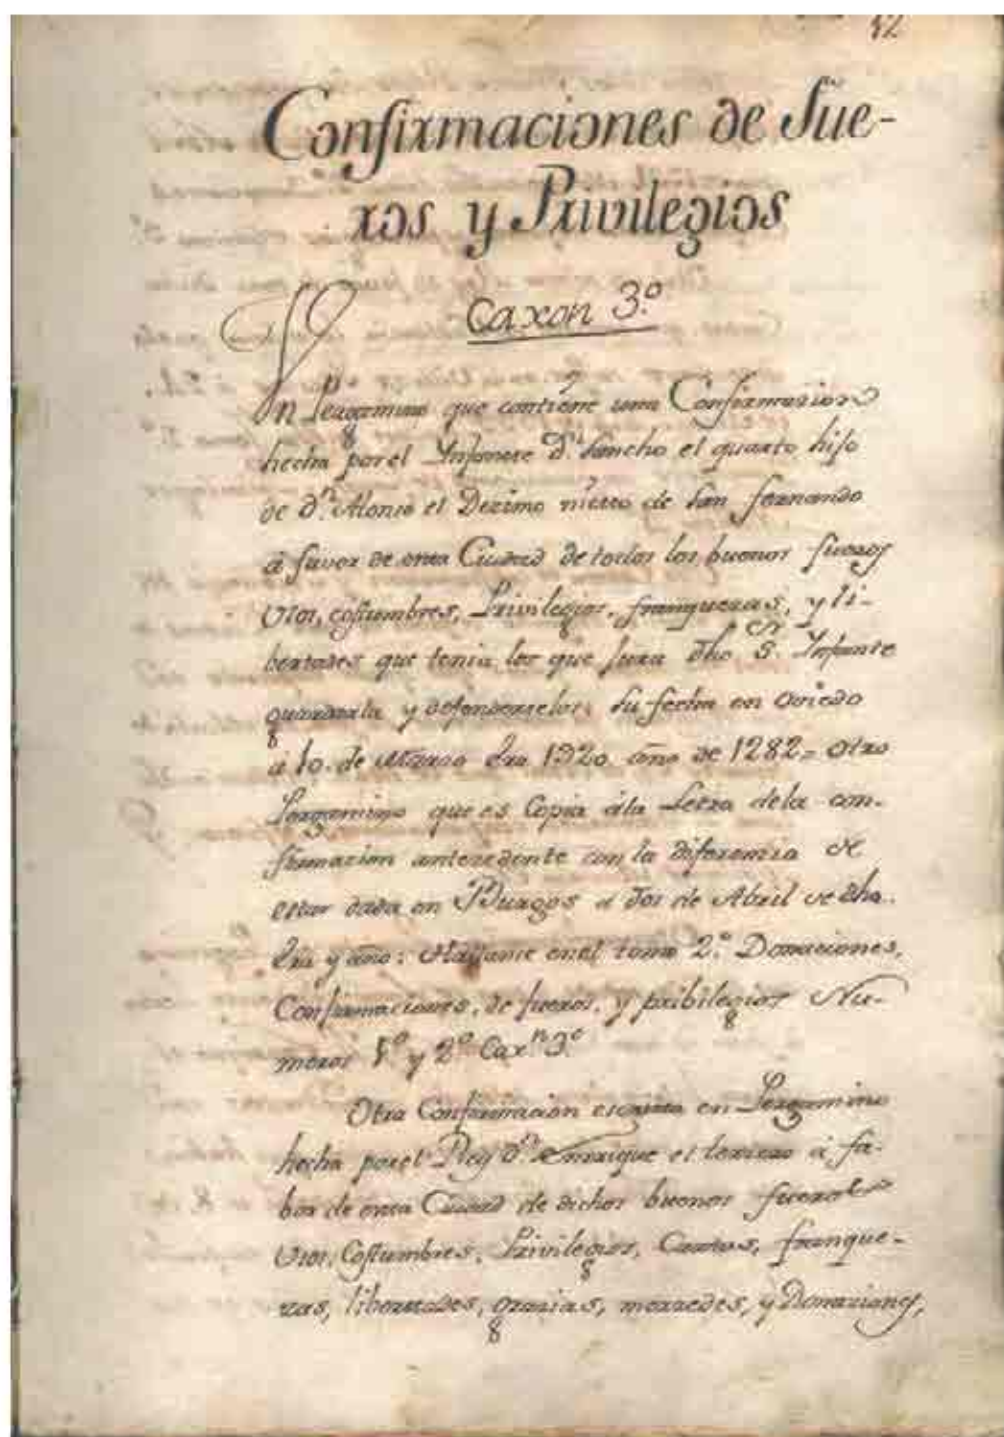 52
Confirmaciones de Fue-
ros y Privilegios
Caxon 3.º
Vn Pergamino que contiene una Confirmacion
hecha por el Ynfante Dn. Sancho el quarto hijo
de Dn. Alonso el Dezimo nieto de San Fernando
á favor de esta Ciudad de todos los buenos fueros
Vsos, costumbres, Privilegios, franquezas, y li-
bertades que tenia los que jura dho Sr. Ynfante
guardarla y defenderselos: su fecha en Oviedo
á 10. de Marzo Era 1320 año de 1282= Otro
Pergamino que es Copia ála Letra dela con-
firmacion antecedente con la diferencia de
estar dada en Burgos a dos de Abril de dha.
Era y año: Hallanse en el tomo 2.º Donaciones,
Confirmaciones, de fueros, y pribilegios Nu-
meros 1.º y 2.º Caxn. 3.º
Otra Confirmacion escrita en Pergamino
hecha por el Rey Dn. Enrrique el terzero á fa-
bor de esta Ciudad de dichos buenos fueros
Vsos, Costumbres, Privilegios, Cartas, franque-
zas, libertades, grazias, merzedes, y Donaziones,